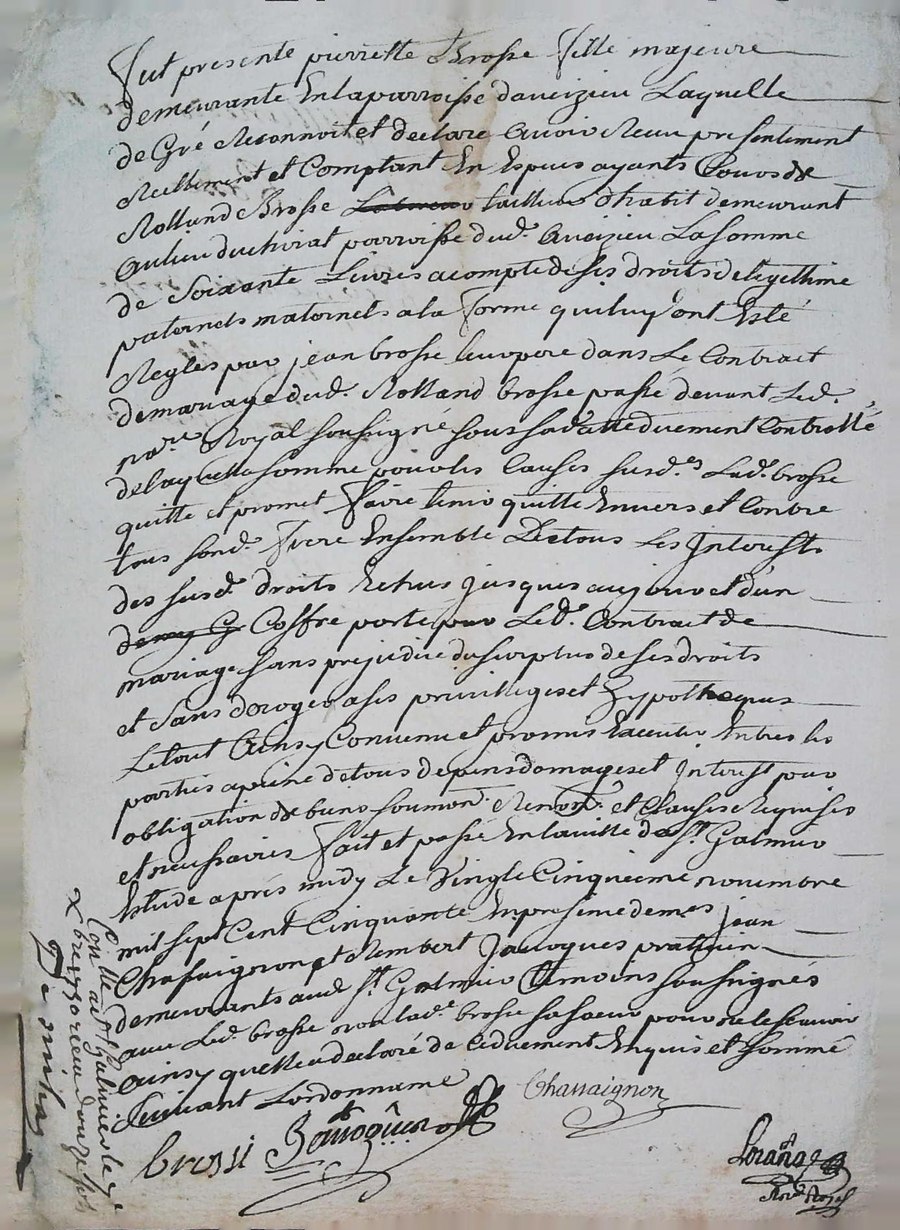 Fut presente pierrette Brosse fille majeure
demeurante En la parroisse daveizieu Laquelle
de Gré Reconnoit et declare avoir Receu presentement
Reellement et Comptant En Especes ayants Cours de
Rolland Brosse tailleur d'habit demeurant
au lieu du chirat parroisse dud. aveizieu La somme
de Soixante Livres a compte de ses droits de legethime
paternels maternels a la forme quiluy ont Esté
Regles par jean brosse leur pere dans Le Contract
de mariage dud. Rolland brosse passé devant Led.
nore. Royal soussigné sous sa datte duement Controllé
de laquelle somme pour les Causes susd.es Lad. brosse
quitte et promet faire tenir quitte Envers et Contre
tous sond. frere Ensemble De tous Les Interests
des susd. droits Echus jusques aujour et d'un
Coffre porté par Led. Contract de
mariage sans prejudice du surplus de ses droits
et Sans deroger a ses privilleges et hypotheques
Le tout Ainsy Convenu et promis Executer Entres les
parties a peine de tous depens domages et Interest par
obligation de biens soumon. Renon. et Clauses Requises
et necessaires fait et passé En la ville de St. Galmier
Estude aprés midy Le Vingt Cinquieme novembre
mil sept Cent Cinquante En presence de mes jean
Chassaignon et Rembert Jacoques praticien
demeurants aud. St. Galmier temoins soussignés
avec Led. brosse non lad.e brosse sa soeur pour ne le scavoir
Ainsy quelle a declaré de ce duement Enquis et sommé
Suivant Lordonnance
Chassaignon
brossi Jacoques
Royal